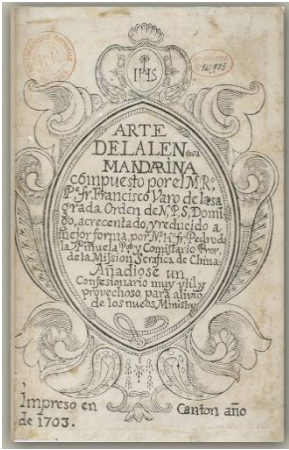 IHS
ARTE
DE LA LEN gua
MANDARINA
compuesto por el M.Rº.
Pe. fr. Francisco Varo de la sa
grada Orden de N.P.S. Domi
go, acrecentado, y reducido a
mejor forma, por N.H.fr. Pedro de
la Piñuela Por. y Comissario Prov.
de la Mission Serafica de China.
Añadiose un
Confesionario muy vtil, y
provechoso para alivio
de los nueos Ministros
Impreso en
Canton año
de 1703.